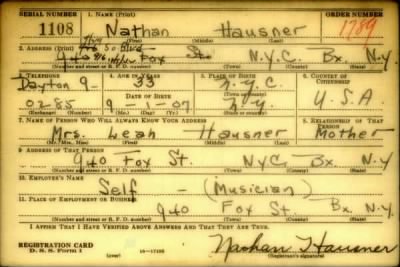 SERIAL NUMBER 1. NAME (Print) ORDER NUMBER
1108 Nathan Hausner 1789
(First) (Middle) (Last)
2. ADDRESS (Print)
940 Fox St. N.Y.C. Bx. N.Y.
(Number and street or R. F. D. number) (Town) (County) (State)
3. TELEPHONE 4. AGE IN YEARS 5. PLACE OF BIRTH 6. COUNTRY OF CITIZENSHIP
Dayton 9- 33 N.Y.C.
DATE OF BIRTH (Town or county) U.S.A
0285 9-1-07 N.Y.
(Exchange) (Number) (Mo.) (Day) (Yr.) (State or country)
7. NAME OF PERSON WHO WILL ALWAYS KNOW YOUR ADDRESS 8. RELATIONSHIP OF THAT PERSON
Mrs. Leah Hausner Mother
(Mr., Mrs., Miss) (First) (Middle) (Last)
9. ADDRESS OF THAT PERSON
940 Fox St. NYC Bx. N.Y.
(Number and street or R. F. D. number) (Town) (County) (State)
10. EMPLOYER'S NAME
Self - (Musician)
11. PLACE OF EMPLOYMENT OR BUSINESS
940 Fox St Bx. N.Y.
(Number and street or R. F. D. number) (Town) (County) (State)
I AFFIRM THAT I HAVE VERIFIED ABOVE ANSWERS AND THAT THEY ARE TRUE.
REGISTRATION CARD
D. S. S. Form 1 (over) 16-17105 Nathan Hausner
(Registrant's signature)